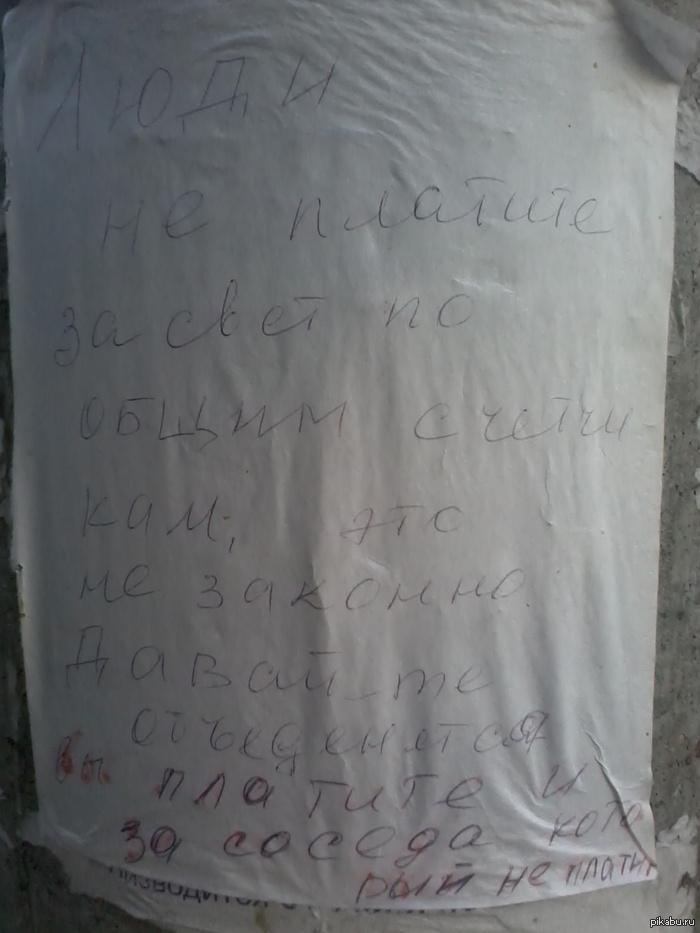 Люди
не платите
за свет по
общим счетчи
кам, это
не законно.
Давай-те
отъеденятся
Вы платите и
за соседа кото
рый не плати
pikabu.ru